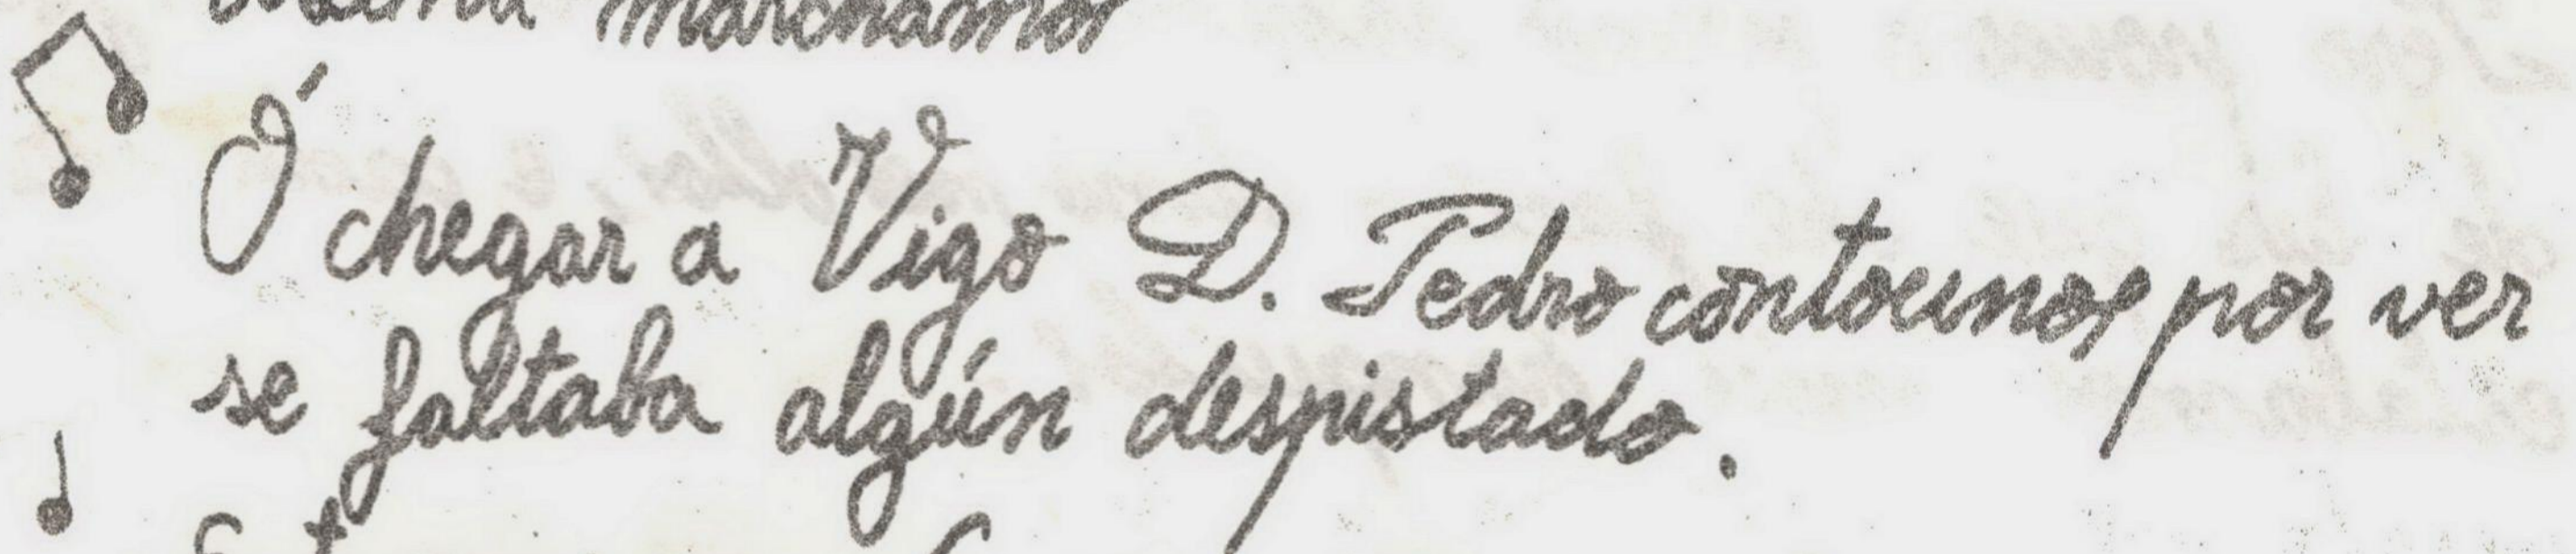 marchamos
Ó chegar a Vigo D. Pedro contounos por ver
se faltaba algún despistado.